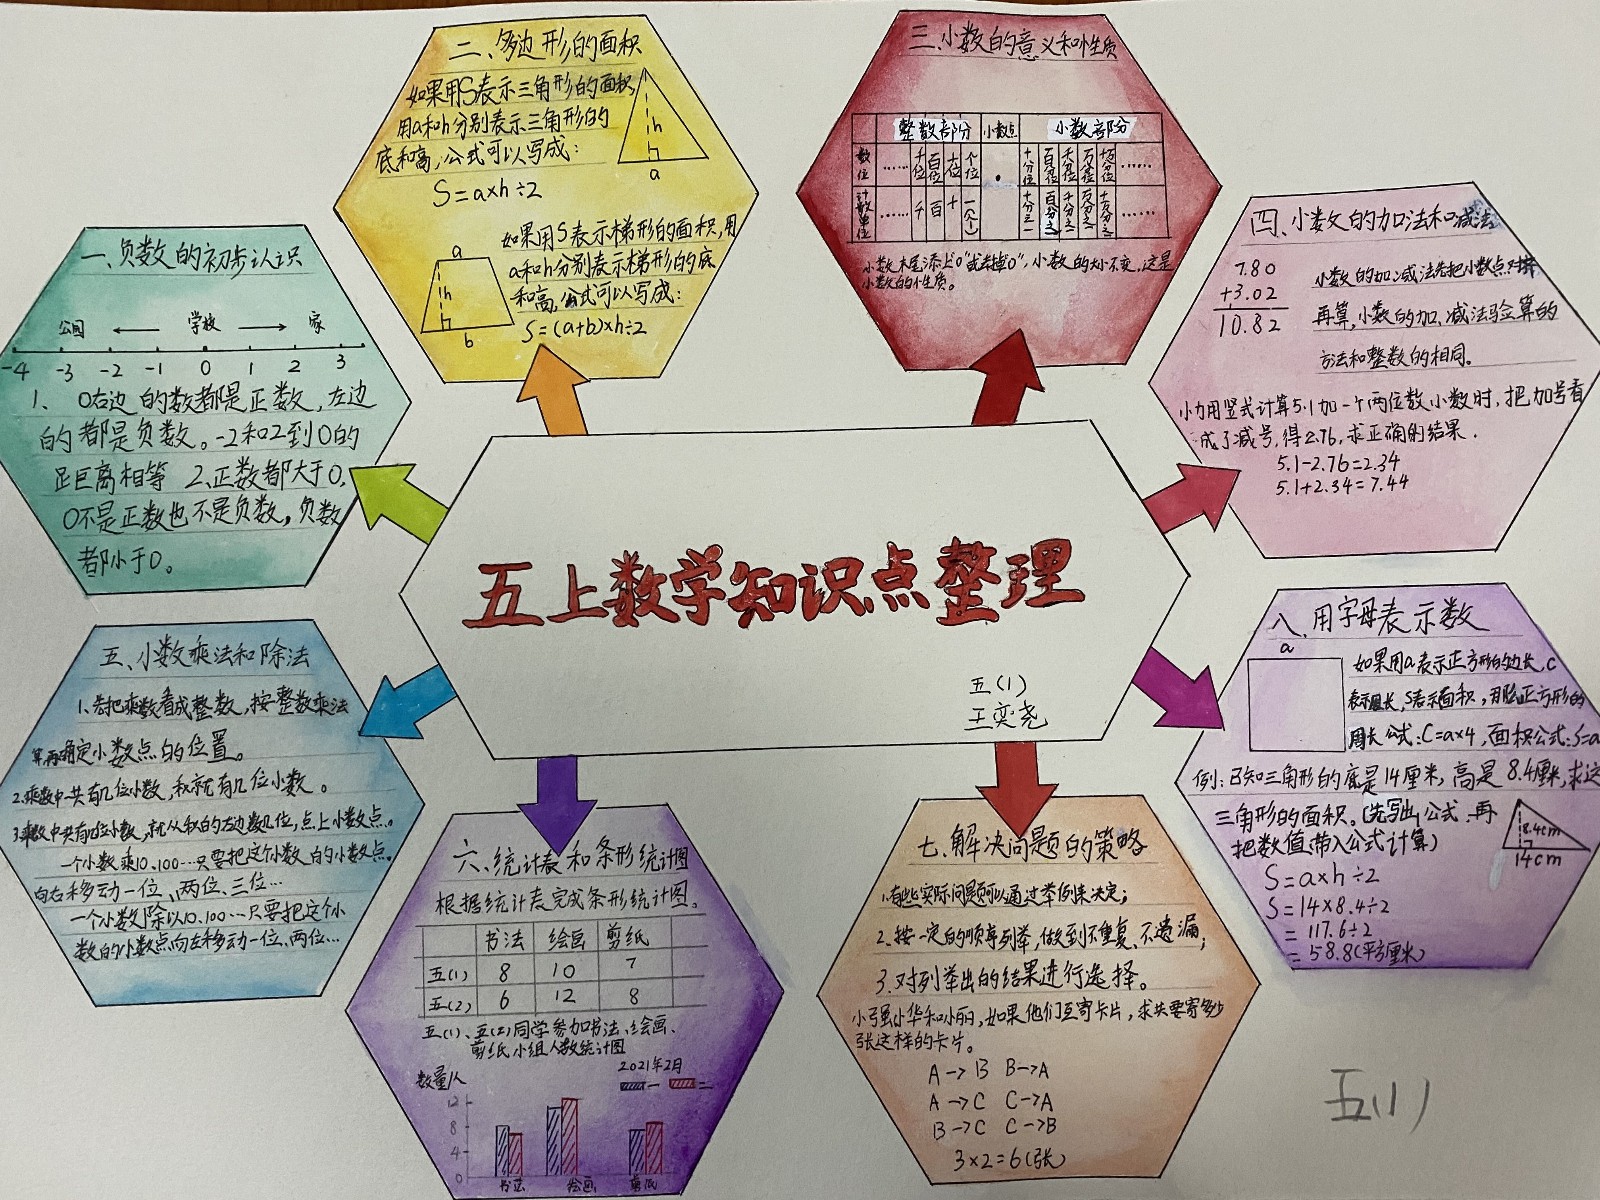 五上数学知识点整理
五(1)
王奕尧
一、负数的初步认识
公园 ← 学校 → 家
-4 -3 -2 -1 0 1 2 3
1、0右边的数都是正数,左边
的都是负数。-2和2到0的
距离相等 2、正数都大于0,
0不是正数也不是负数,负数
都小于0。
二、多边形的面积
如果用S表示三角形的面积,
用a和h分别表示三角形的
底和高,公式可以写成:
S=a×h÷2
h
a
如果用S表示梯形的面积,用
a和h分别表示梯形的底
和高,公式可以写成:
S=(a+b)×h÷2
a
h
b
三、小数的意义和性质
整数部分 小数点 小数部分
数位 …… 千位 百位 十位 个位 · 十分位 百分位 千分位 万分位 十万分位 ……
计数单位 …… 千 百 十 一(个) 十分之一 百分之一 千分之一 万分之一 十万分之一 ……
小数末尾添上“0”或去掉“0”,小数的大小不变,这是
小数的性质。
四、小数的加法和减法
7.80
+3.02
10.82
小数的加减法先把小数点对齐
再算,小数的加、减法验算的
方法和整数的相同。
小力用竖式计算5.1加一个两位数小数时,把加号看
成了减号,得2.76,求正确的结果.
5.1-2.76=2.34
5.1+2.34=7.44
五、小数乘法和除法
1、先把乘数看成整数,按整数乘法
算再确定小数点的位置。
2.乘数中一共有几位小数,积就有几位小数。
3.乘数中共有几位小数,就从积的右边数几位,点上小数点。
一个小数乘10、100…只要把这个小数的小数点
向右移动一位、两位、三位…
一个小数除以10、100…只要把这个小
数的小数点向左移动一位、两位…
六、统计表和条形统计图
根据统计表完成条形统计图。
书法 绘画 剪纸
五(1) 8 10 7
五(2) 6 12 8
五(1)、五(2)同学参加书法、绘画、
剪纸小组人数统计图
2021年2月
数量/人 一 二
12
8
4
0
书法 绘画 剪纸
七、解决问题的策略
1.有些实际问题可以通过举例来决定;
2、按一定的顺序列举,做到不重复、不遗漏;
3.对列举出的结果进行选择。
小强小华和小丽,如果他们互寄卡片,求共要寄多少
张这样的卡片。
A→B B→A
A→C C→A
B→C C→B
3×2=6(张)
八、用字母表示数
a
如果用a表示正方形的边长,C
表示周长,S表示面积,那么正方形的
周长公式:C=a×4,面积公式:S=a
例:已知三角形的底是14厘米,高是8.4厘米,求这
三角形的面积。(先写出公式,再
把数值带入公式计算)
8.4cm
14cm
S=a×h÷2
S=14×8.4÷2
=117.6÷2
=58.8(平方厘米)
五(1)